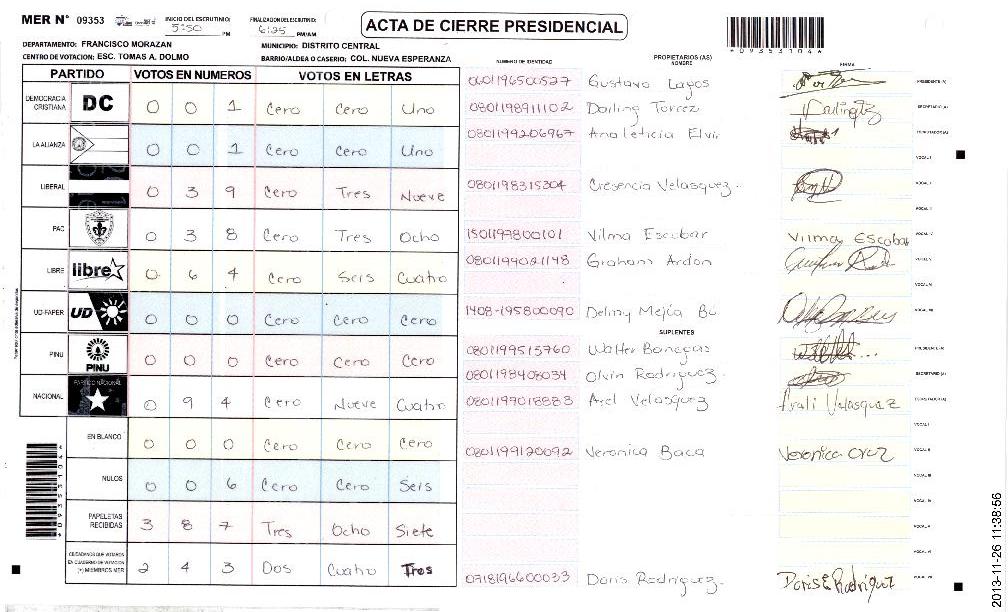 MER N° 09353 INICIO DEL ESCRUTINIO: 5:50 PM FINALIZACION DEL ESCRUTINIO: 6:25 PM/AM ACTA DE CIERRE PRESIDENCIAL
DEPARTAMENTO: FRANCISCO MORAZAN MUNICIPIO: DISTRITO CENTRAL
CENTRO DE VOTACION: ESC. TOMAS A. DOLMO BARRIO/ALDEA O CASERIO: COL. NUEVA ESPERANZA
NUMERO DE IDENTIDAD PROPIETARIOS (AS) NOMBRE FIRMA
PARTIDO VOTOS EN NUMEROS VOTOS EN LETRAS
DEMOCRACIA CRISTIANA DC 0 0 1 Cero Cero Uno
LA ALIANZA 0 0 1 Cero Cero Uno
LIBERAL 0 3 9 Cero Tres Nueve
PAC 0 3 8 Cero Tres Ocho
LIBRE libre 0 6 4 Cero Seis Cuatro
UD-FAPER UD 0 0 0 Cero Cero Cero
PINU PINU 0 0 0 Cero Cero Cero
NACIONAL PARTIDO NACIONAL 0 9 4 Cero Nueve Cuatro
EN BLANCO 0 0 0 Cero Cero Cero
NULOS 0 0 6 Cero Cero Seis
PAPELETAS RECIBIDAS 3 8 7 Tres Ocho Siete
CIUDADANOS QUE VOTARON EN CUADERNO DE VOTACION (+) MIEMBROS MER 2 4 3 Dos Cuatro Tres
0601196500527 Gustavo Lagos PRESIDENTE (A)
0801198911102 Darling Torrez SECRETARIO (A)
0801199206967 Ana leticia Elvir ESCRUTADOR (A)
VOCAL I
0801198315304 Cresencia Velasquez. VOCAL II
1501199800101 Vilma Escobar Vilma Escobar VOCAL IV
0801199021148 Graham Ardon VOCAL V
VOCAL VI
1408-195800090 Delmy Mejía Bu
SUPLENTES
0801199515760 Walter Banegas PRESIDENTE (A)
0801198408034 Olvin Rodriguez. SECRETARIO (A)
0801199018888 Axel Velasquez Arali Velasquez ESCRUTADOR (A)
VOCAL I
0801199120092 Veronica Baca Veronica Cruz VOCAL II
VOCAL III
VOCAL IV
VOCAL V
VOCAL VI
0718196600033 Doris Rodriguez. Doris E Rodriguez
*093531044*
2013-11-26 11:38:56